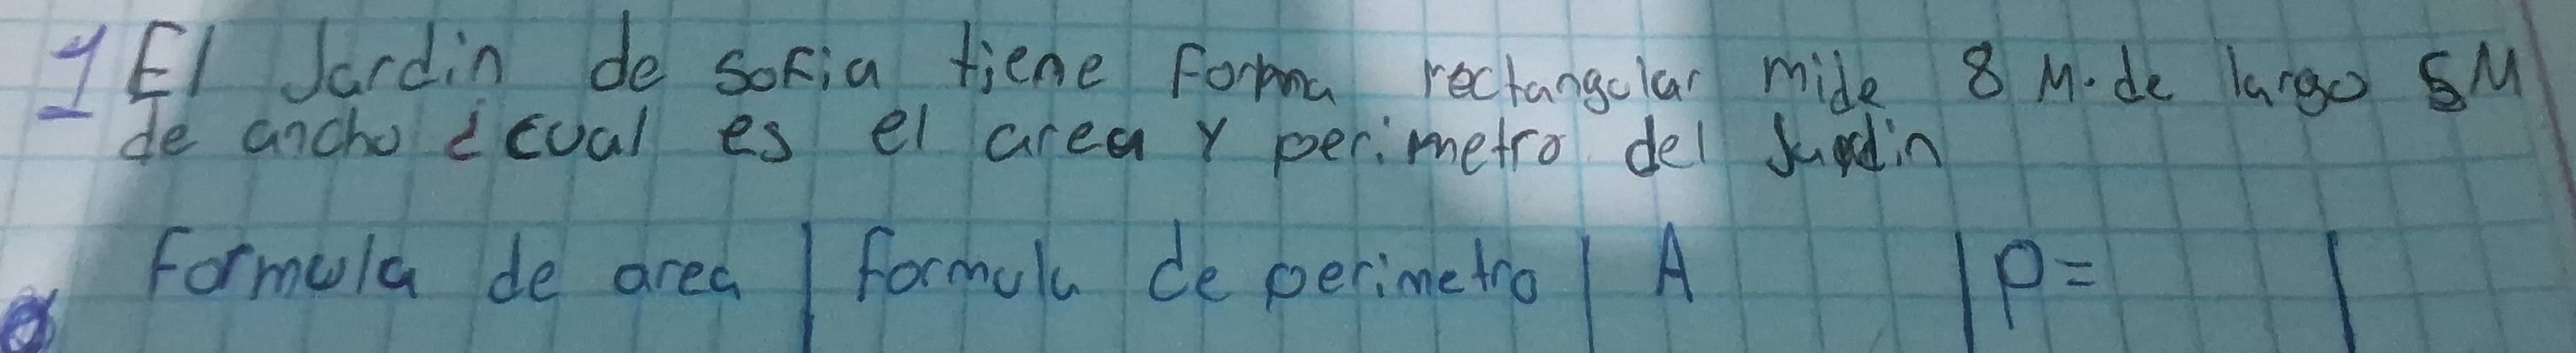 1 El Jardin de sofia tiene Forma rectangular mide 8 M. de largo 5M
de ancho ¿cual es el area Y perimetro del Jardin
Formula de area | formula de perimetro | A | P= |